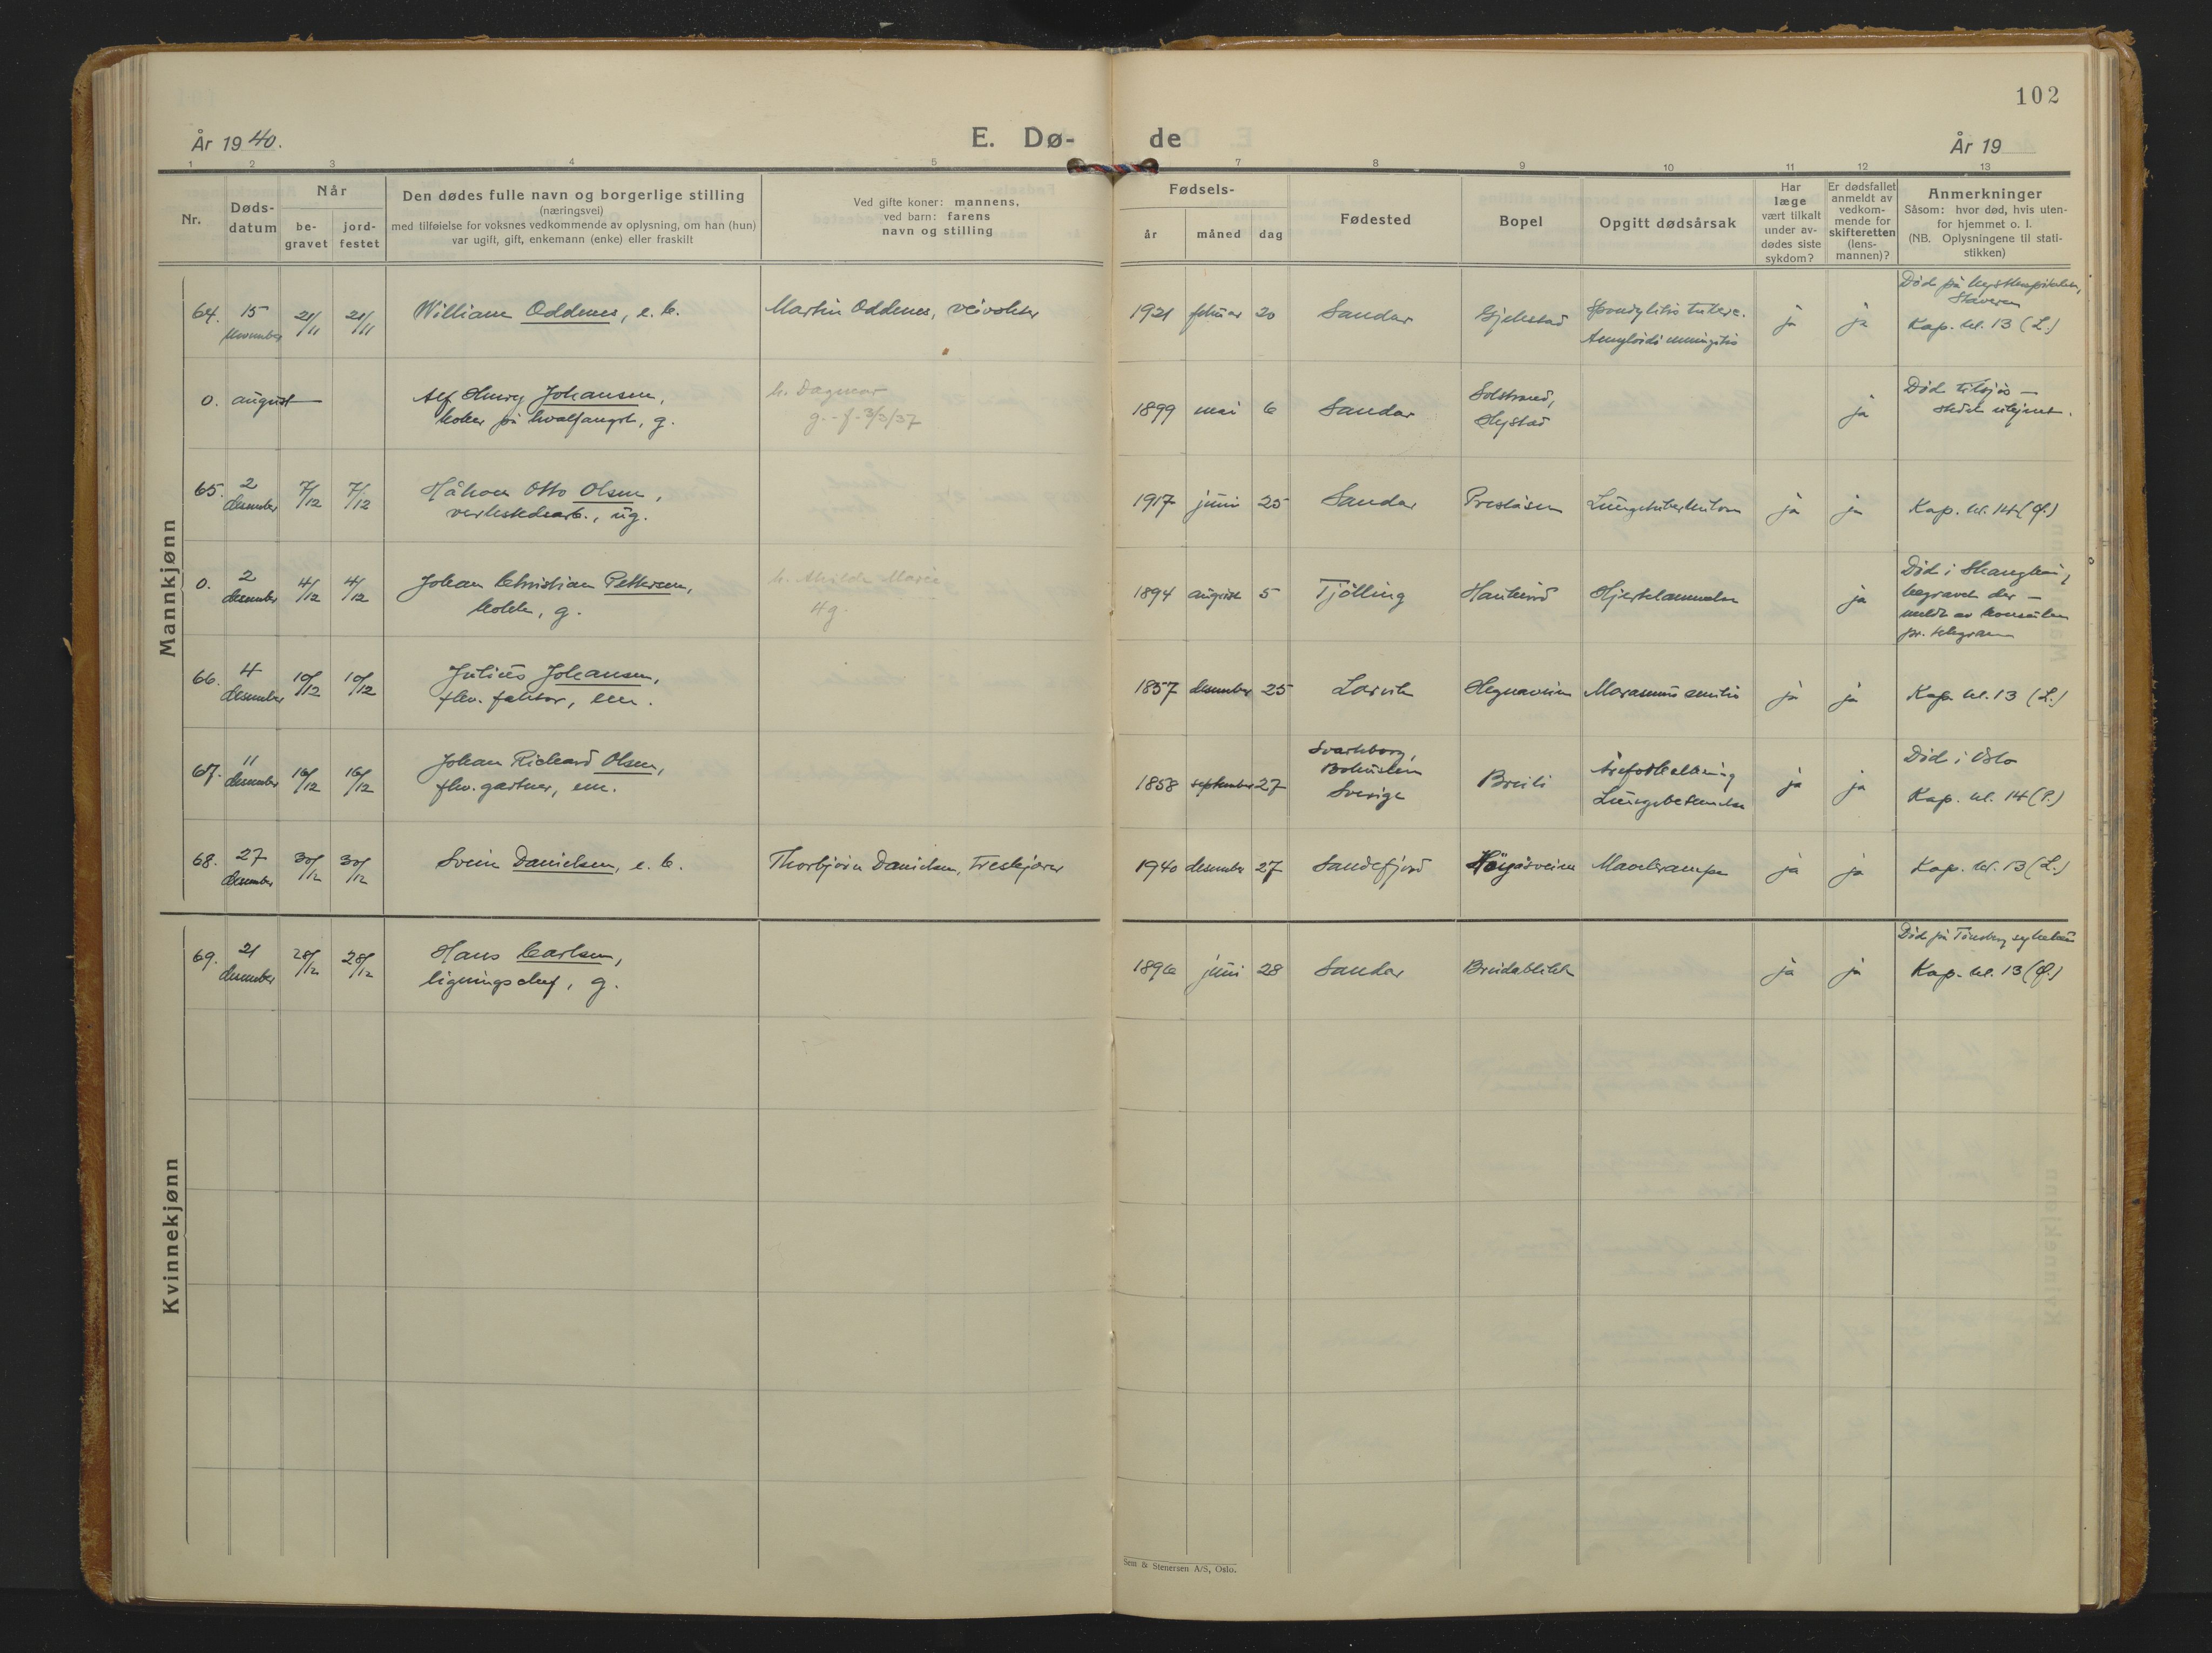 102
År 1940.
E. Dø-
de
År 19
1 2 3 4 5
7 8 9 10 11 12 13
Nr.
Døds-
datum
Når
be-
gravet
jord-
festet
Den dødes fulle navn og borgerlige stilling
(næringsvei)
med tilføielse for voksnes vedkommende av oplysning, om han (hun)
var ugift, gift, enkemann (enke) eller fraskilt
Ved gifte koner: mannens,
ved barn: farens
navn og stilling
Fødsels-
år
måned
dag
Fødested
Bopel
Opgitt dødsårsak
Har
læge
vært tilkalt
under av-
dødes siste
sykdom?
Er dødsfallet
anmeldt av
vedkom-
mende for
skifteretten
(lens-
mannen)?
Anmerkninger
Såsom: hvor død, hvis uten-
for hjemmet o. l.
(NB. Oplysningene til stati-
stikken)
Mannkjønn
64. 15 november 21/11 21/11 William Oddenes, e. b. Martin Oddenes, veivokter 1921 februar 20 Sandar Gjekstad
Spondylitis tuberc.
ja ja
Død på kysthospitalet,
Stavern
Kap. kl. 13 (L.)
0. august
Alf Henry Johansen,
koker på hvalfangst, g.
h. Dagmar
g. - f. 3/3/37
1899 mai 6 Sandar
Solstrand,
ja
Død tilsjøs -
65. 2 desember 7/12 7/12
Håkon Otto Olsen,
verkstedarb., ug.
1917 juni 25 Sandar Preståsen Lungetuberkulose ja ja Kap. kl. 14 (Ø.)
0. 2 desember 4/12 4/12
Johan Christian Pettersen,
g.
1894 august 5 Tjölling Haukerød Hjertelammelse ja
Død i Shanghai,
begravet der -
meldt av konsulen
pr. telegram
66. 4 desember 10/12 10/12
Julius Johansen,
fhv. faktor, em.
1857 desember 25 Larvik Hegnaveien Marasmus senilis ja ja Kap. kl. 13 (L.)
67. 11 desember 16/12 16/12
Johan Richard Olsen,
fhv. gartner, em.
1858 september 27
Svarteborg,
Bohuslen
Sverige
Breili
Åreforkalkning
Lungebetennelse
ja ja
Død i Oslo
Kap. kl. 14 (P.)
68. 27 desember 30/12 30/12 Svein Danielsen, e. b. Thorbjørn Danielsen, treskjærer 1940 desember 27 Sandefjord Høyåsveien Mavekrampe ja ja Kap. kl. 13 (L.)
Kvinnekjønn
69. 21 desember 28/12 28/12
Hans Carlsen,
ligningschef, g.
1896 juni 28 Sandar Breidablikk ja ja
Død på Tønsberg sykehus
Kap. kl. 13 (Ø.)
Sem & Stenersen A/S, Oslo.